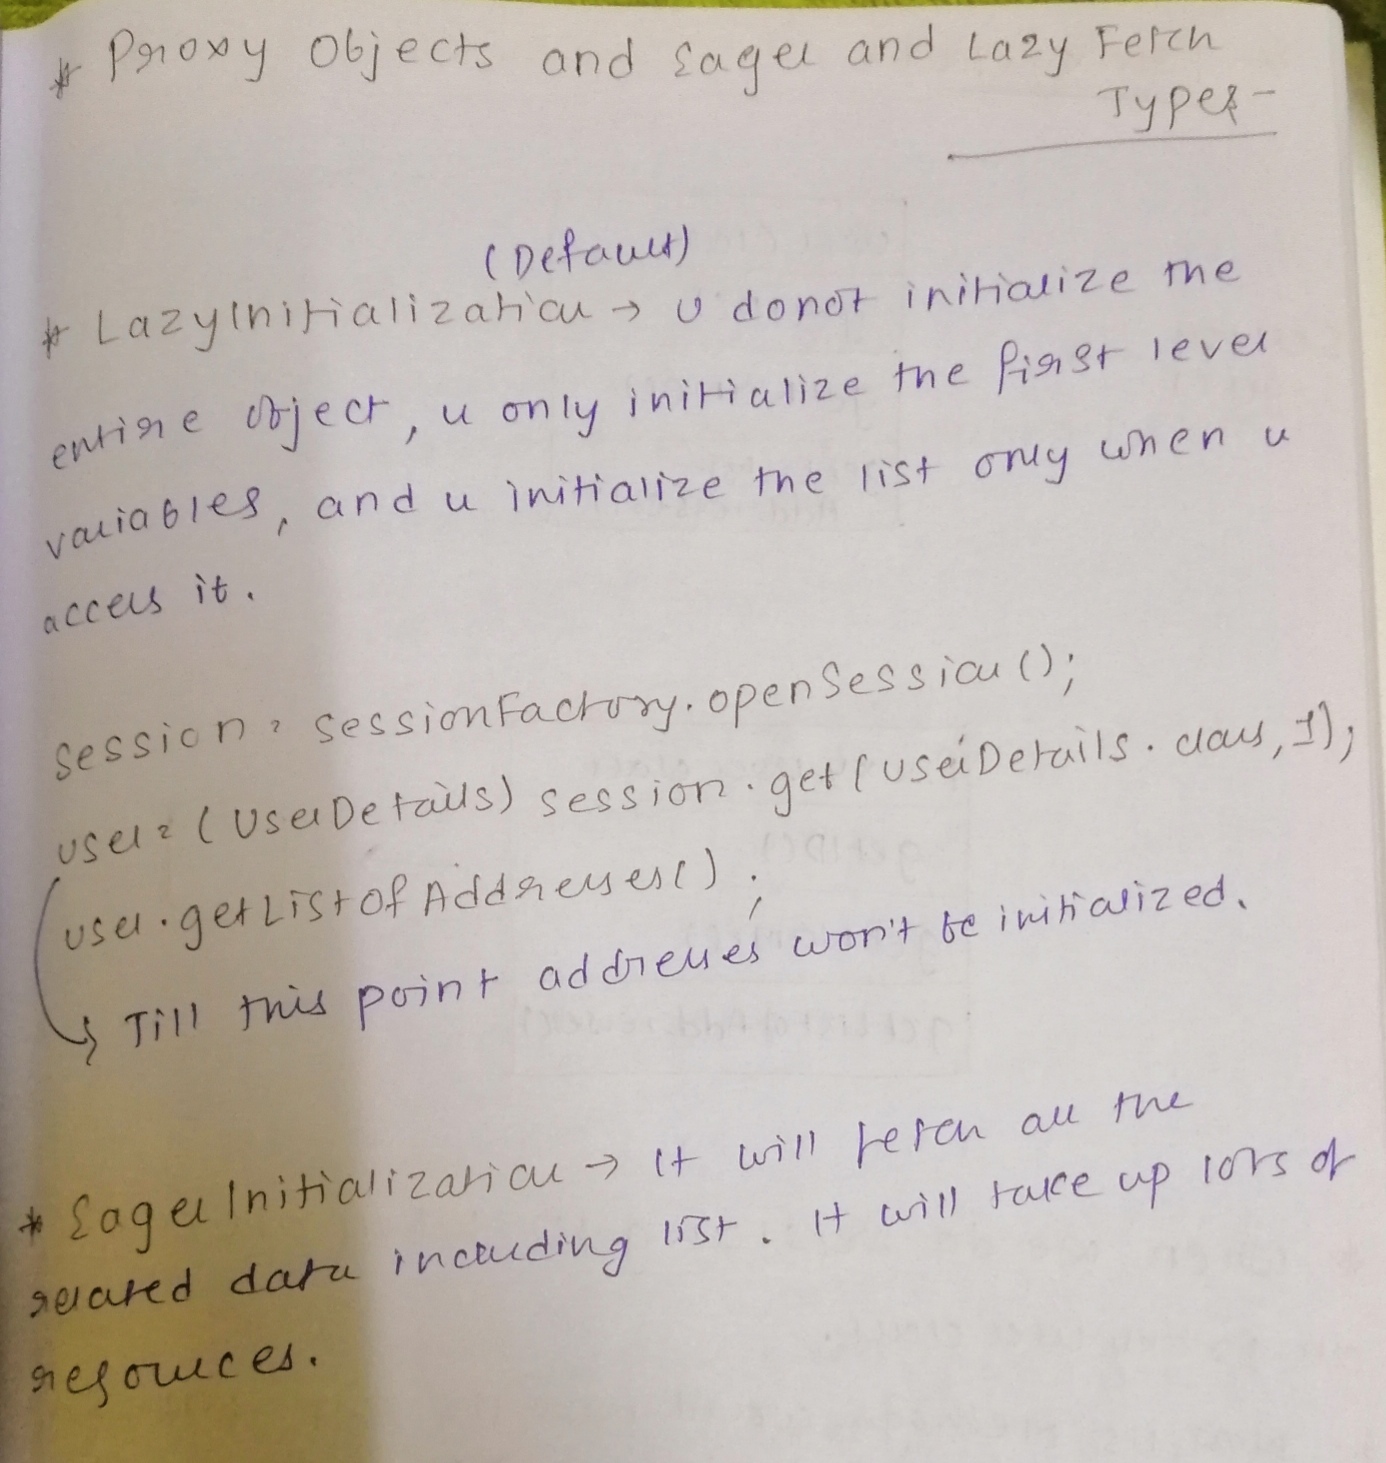 * Proxy Objects and Eager and Lazy Fetch
Types-
(Default)
* LazyInitialization → u donot initialize the
entire object, u only initialize the first level
variables, and u initialize the list only when u
access it.
session = sessionFactory.openSession();
user = (UserDetails) session.get(UserDetails.class, 1);
user.getListOfAddresses();
↳ Till this point addresses won't be initialized.
* Eager Initialization → It will fetch all the
related data including list. It will take up lots of
resources.